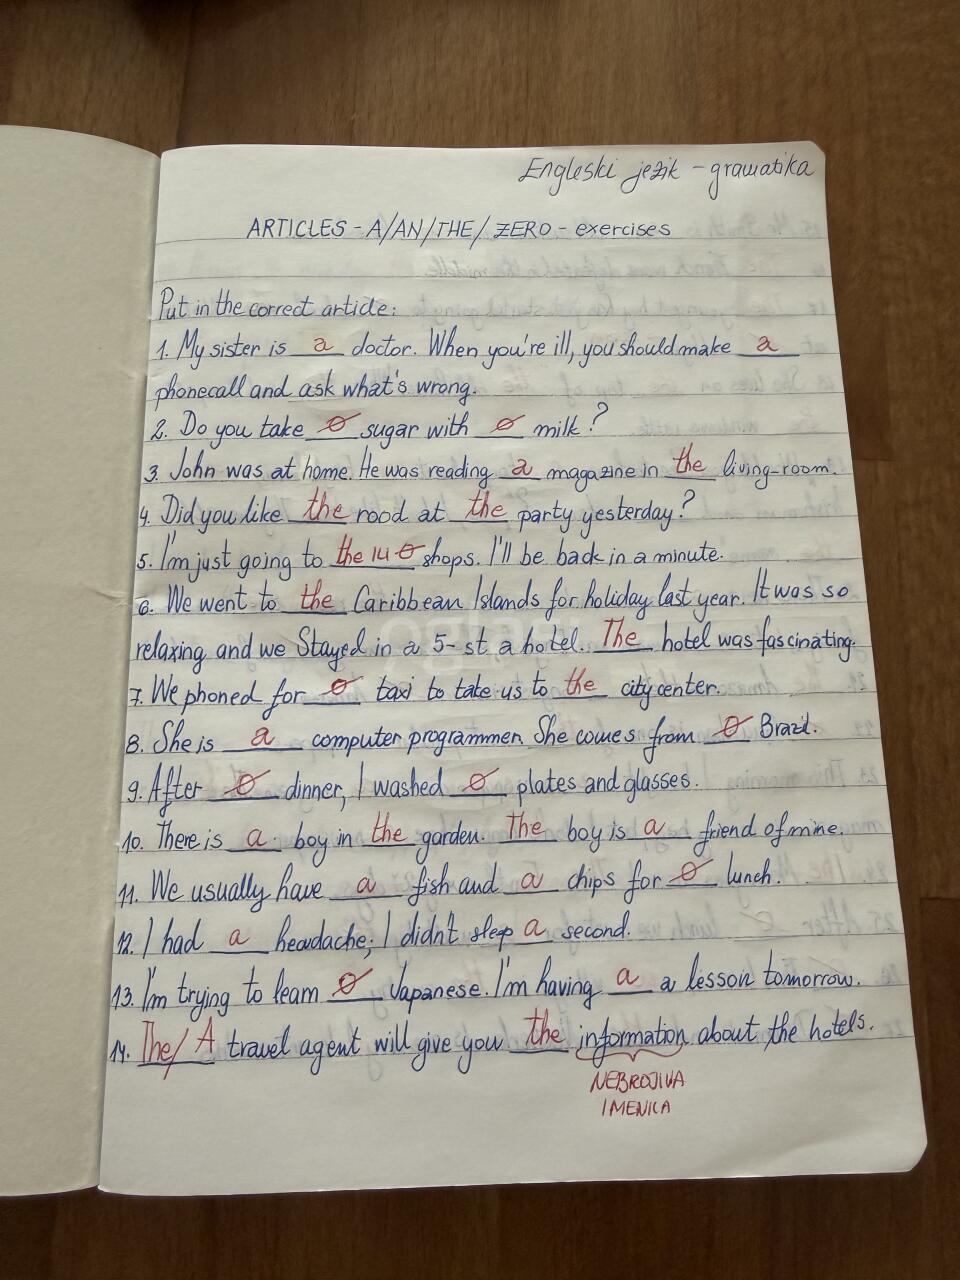 Engleski jezik - gramatika
ARTICLES - A/AN/THE/ZERO - exercises
Put in the correct article:
1. My sister is a doctor. When you're ill, you should make a
phonecall and ask what's wrong.
2. Do you take Ø sugar with Ø milk?
3. John was at home. He was reading a magazine in the living-room.
4. Did you like the rood at the party yesterday?
5. I'm just going to the Ø shops. I'll be back in a minute.
6. We went to the Caribbean Islands for holiday last year. It was so
relaxing and we Stayed in a 5- st a hotel. The hotel was fascinating.
7. We phoned for Ø taxi to take us to the city center.
8. She is a computer programmer. She comes from Ø Brazil.
9. After Ø dinner, I washed Ø plates and glasses.
10. There is a boy in the garden. The boy is a friend of mine.
11. We usually have a fish and a chips for Ø lunch.
12. I had a headache; I didn't sleep a second.
13. I'm trying to learn Ø Japanese. I'm having a a lesson tomorrow.
14. The/A travel agent will give you the information about the hotels.
NEBROJIVA
IMENICA